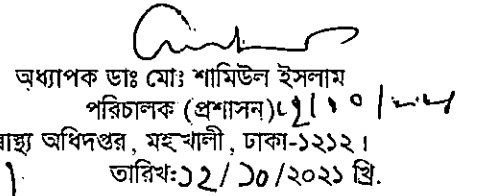 অধ্যাপক ডাঃ মোঃ শামিউল ইসলাম
পরিচালক (প্রশাসন)
স্বাস্থ্য অধিদপ্তর, মহাখালী, ঢাকা-১২১২।
তারিখঃ১২/১০/২০২১ খ্রি.